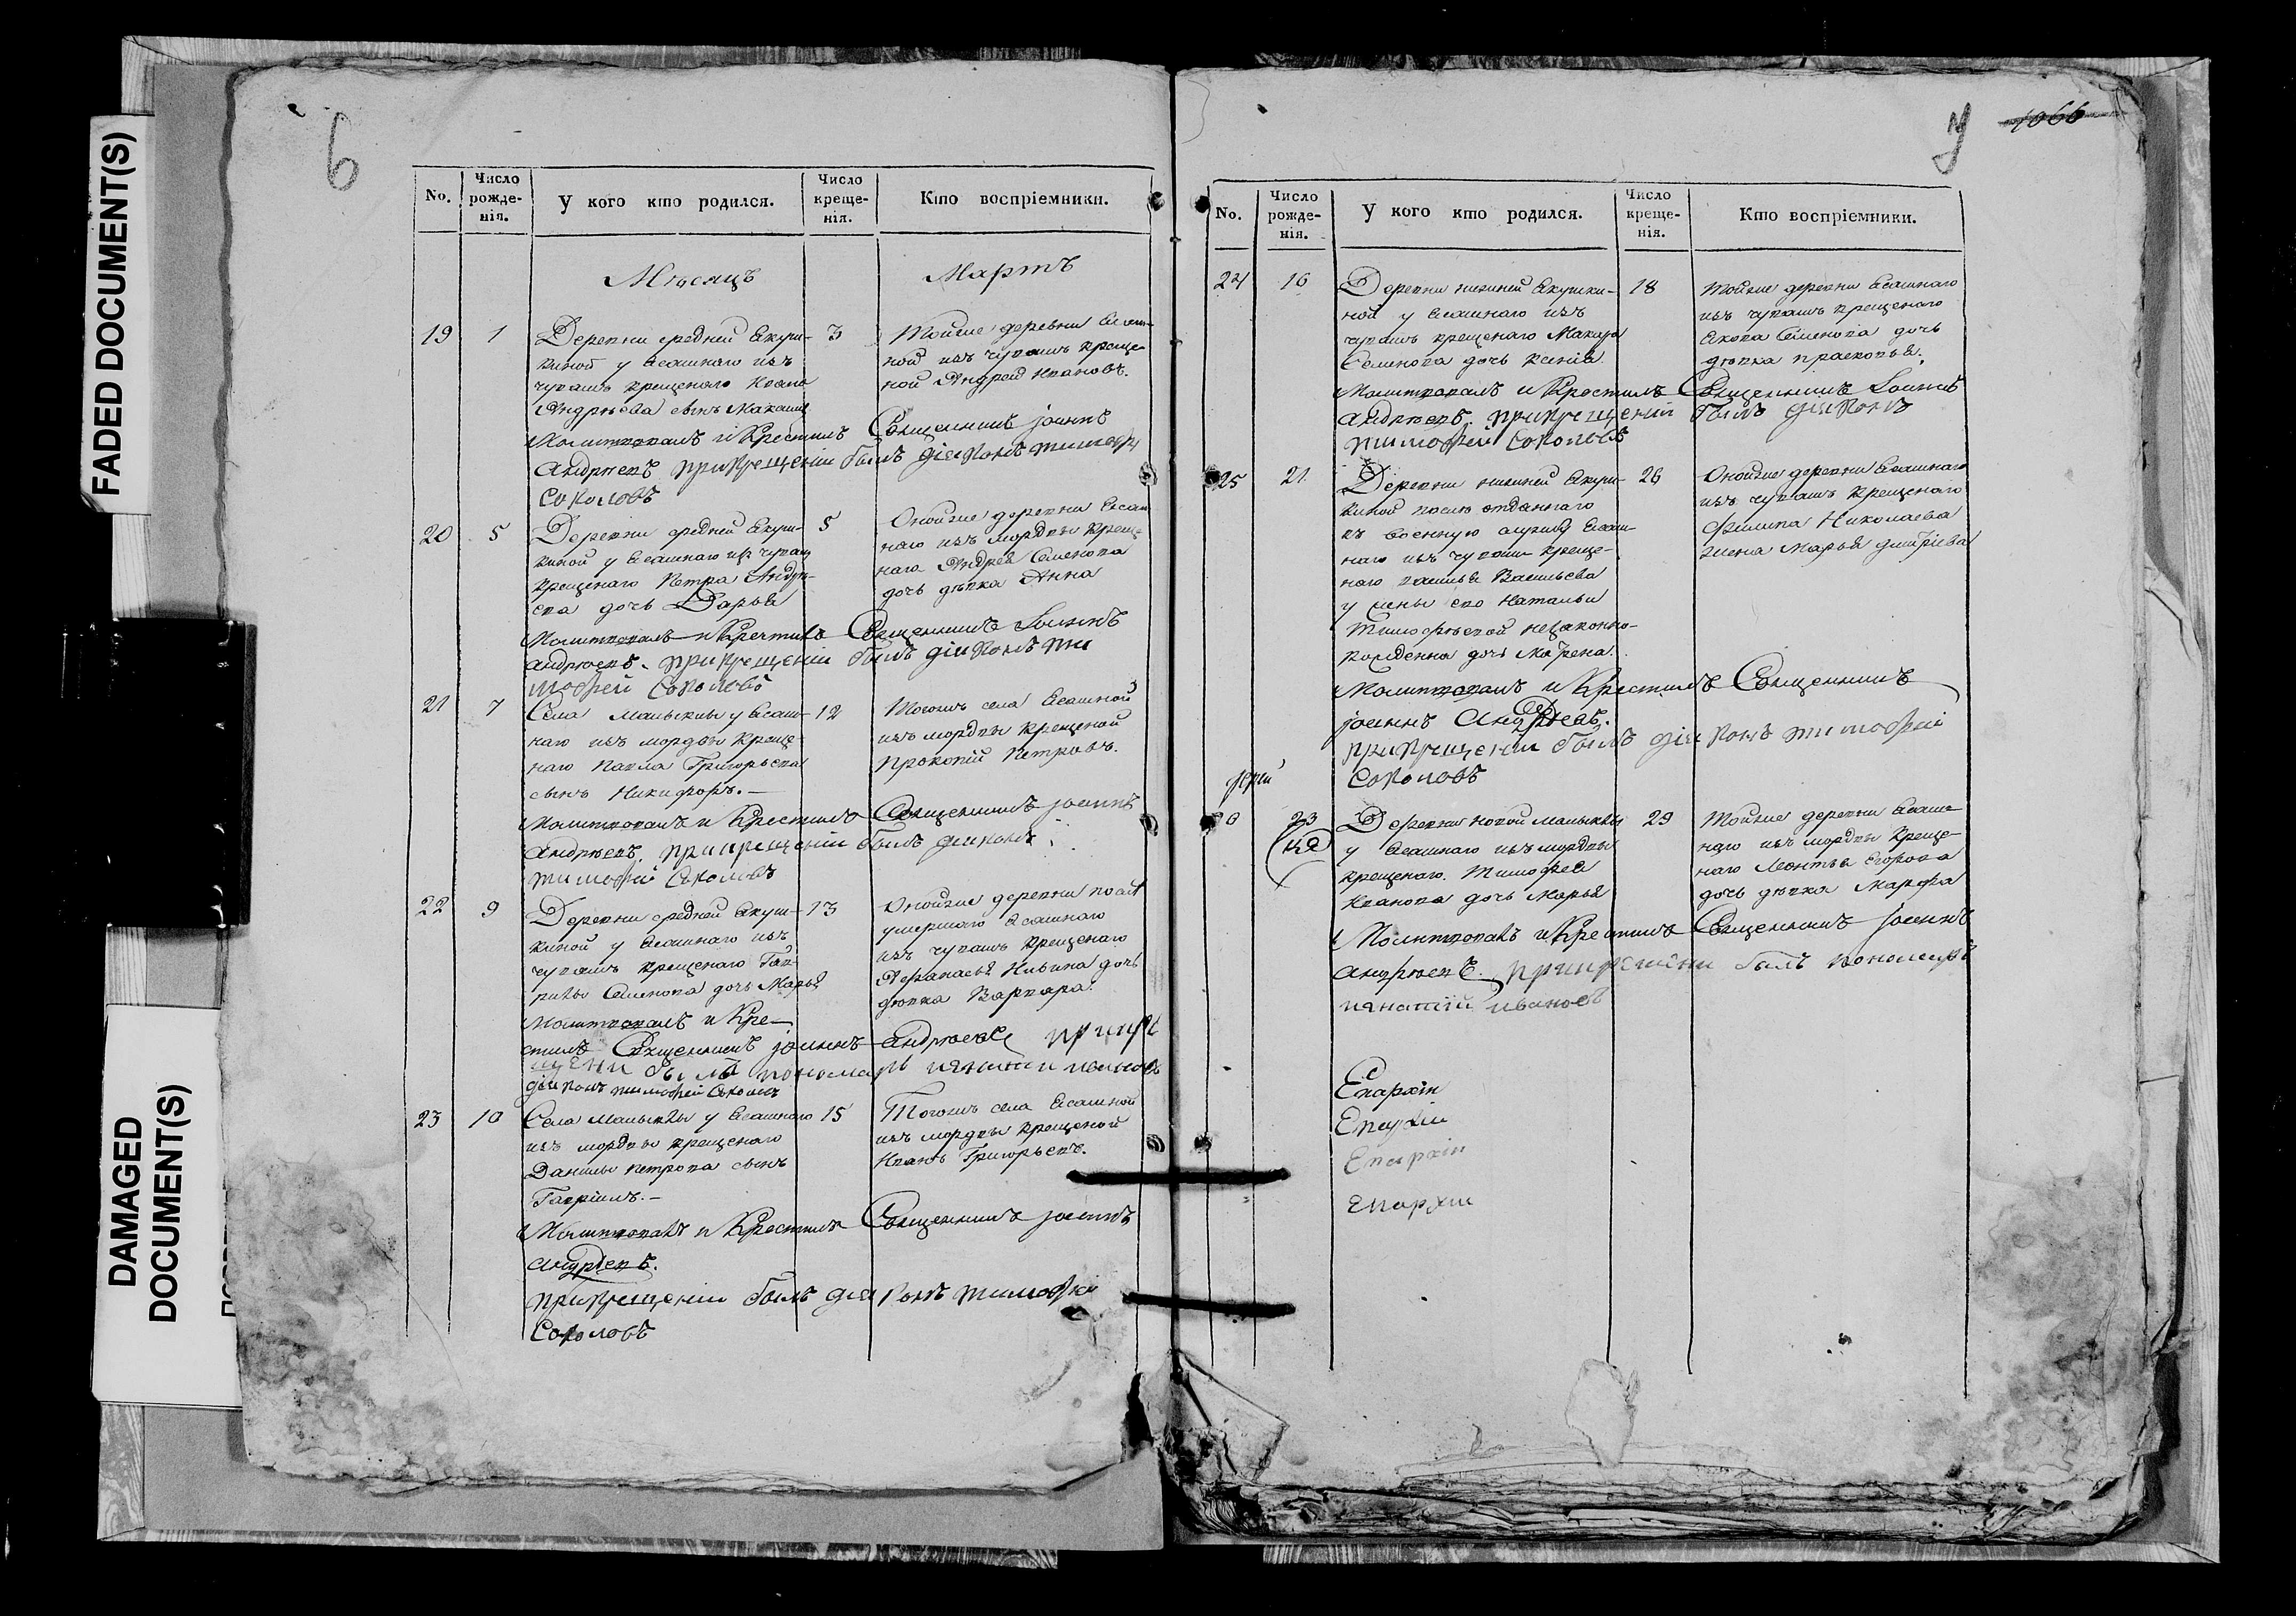 FADED DOCUMENT(S)
DAMAGED
DOCUMENT(S)
6
No.
Число рожде-нія.
У кого кто родился.
Число креще-нія.
Кто воспріемники.
Мѣсяцъ
Мартъ
19 1
Деревни средней Якуш-
киной у Ясашнаго изъ
чувашъ крещенаго Ивана
Андрѣева сынъ Максимъ
3
Тойже деревни Ясаш-
ной изъ чувашъ креще-
ной Андрей Ивановъ.
Молитвовалъ и Крестилъ Священникъ іоаннъ
Андрѣевъ при крещеніи былъ діаконъ тимофей
Соколовъ
20 5
Деревни средней Якуш-
киной у Ясашнаго изъ чуваш
крещенаго Петра Андрѣ-
ева дочь Дарья
5
Онойже деревни Ясаш
наго изъ мордвы крещ-
наго Андрея Семенова
дочь дѣвка Анна
Молитвовалъ и Крестилъ Священникъ Іоаннъ
андрѣевъ. при крещеніи былъ діаконъ ти
мофей Соколовъ
21 7
Села Малыклы у Ясаш-
наго изъ мордвы креще
наго Павла Григорьева
сынъ Никифоръ.
12
Тогожъ села Ясашной
изъ мордвы крещеной
Прокопій Петровъ.
Молитвовалъ и Крестилъ Священникъ іоаннъ
андрѣевъ. при крещеніи былъ діаконъ
тимофей Соколовъ
22 9
Деревни средней Якуш-
киной у Ясашнаго изъ
чувашъ крещенаго Гав-
рилы Семенова дочь Марья
13
Онойже деревни посля
умершаго Ясашнаго
изъ чувашъ крещенаго
Афанасья Ильина дочь
дѣвка Варвара.
Молитвовалъ и Кре-
стилъ Священникъ іоаннъ Андрѣевъ при кре
щени былъ пономарь игнатии иванов
діаконъ тимофей Соколовъ
23 10
Села Малыклы у Ясашнаго
изъ мордвы крещенаго
Данилы Петрова сынъ
Гавріилъ.
15
Тогожъ села Ясашной
изъ мордвы крещеной
Иванъ Григорьевъ.
Молитвовалъ и Крестилъ Священникъ іоаннъ
андрѣевъ.
при крещеніи былъ діаконъ тимофеи
Соколовъ
1066
No.
Число рожде-нія.
У кого кто родился.
Число креще-нія.
Кто воспріемники.
24 16
Деревни нижней Якушки-
ной у Ясашнаго изъ
чувашъ крещенаго Макара
Семенова дочь Ксенія
18
Тойже деревни Ясашнаго
изъ чувашъ крещенаго
Якова Семенова дочь
дѣвка прасковья.
Молитвовалъ и Крестилъ Священникъ Іоаннъ
андрѣевъ. при крещении былъ діаконъ
тимофей Соколовъ
25 21
Деревни нижней Якуш-
киной послѣ отданнаго
въ военную службу Ясаш-
наго изъ чувашъ креще-
наго Василья Васильева
у жены его Натальи
Тимофѣевой незаконно-
рожденна дочь Матрена.
26
Онойже деревни Ясашнаго
изъ чувашъ крещенаго
Филипа Николаева
жена Марья дмитріева
Молитвовалъ и Крестилъ Священникъ
іоаннъ Андрѣевъ.
при крещении былъ діаконъ тимофей
Соколовъ
26 23
Деревни новой малыклы
у Ясашнаго изъ мордвы
крещенаго. Тимофея
Иванова дочь Марья
29
Тойже деревни Ясаш-
наго изъ мордвы креще-
наго Леонтья Егорова
дочь дѣвка Марфа
Молитвовалъ и Крестилъ Священникъ іоаннъ
андрѣевъ. при крещении былъ пономарь
игнатій ивановъ
Епархіи
Епархіи
Епархіи
Епархіи